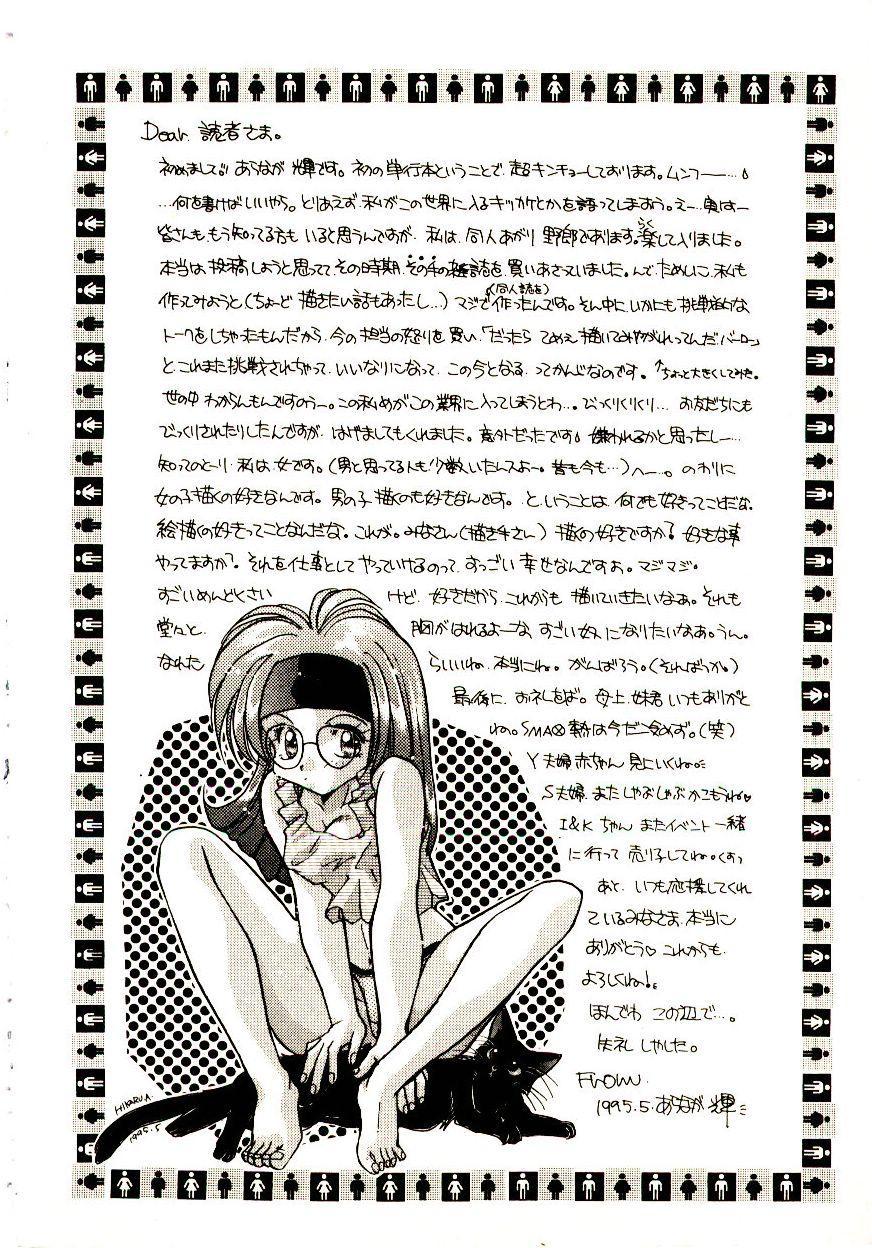 Dear. 読者さま。
初めまして!! あらなが 輝です。初の単行本ということで、超キンチョーしております。ムンフーー…。
…何を書けばいいやら。とりあえず、私がこの世界に入るキッカケとかを語ってしまおう。えー…実はー
皆さんも、もう知ってる方も いると思うんですが、私は、同人あがり 野郎であります。楽して入りました。
らく
本当は、投稿しようと思ってて その時期、その手の雑誌を、買いあさっていました。んで、ためしに、私も
(同人誌を)
作ってみようと(ちょーど 描きたい話もあったし…) マジで作ったんです。そん中に、いかにも 挑戦的な
トークをしちゃったもんだから、今の担当の怒りを買い、「だったら てめえ描いてみやがれってんだ、バーロー」
と、これまた挑戦されちゃって、いいなりになって、この今となる、ってかんじなのです。↑ちょっと大きくしてみた。
世の中 わからんもんですのうー。この私めがこの業界に入ってしまうとわ…。びっくりくりくり… お友だちにも
びっくりされたりしたんですが、はげましてもくれました。意外だったです。嫌われるかと思ったしー…
知ってのとーり、私は、女です。(男と思ってる人も少数いたんスよー。昔も今も…) へー…。のわりに
女の子描くの好きなんです。男の子 描くのも好きなんです。と、いうことは、何でも好きってことだな。
絵描くの好きってことなんだな。これが。みなさん(描き手さん) 描くの好きですか? 好きな事
やってますか?。それを仕事として やっていけるのって、すっごい 幸せなんですよ。マジマジ。
すごいめんどくさい けど、好きだから、これからも 描いていきたいなあ。それも
堂々と、 胸がはれるよーな、すごい奴になりたいなあ。うん。
なれた らいいね、本当にね。がんばろう。(そればっか。)
最後に、お礼をば。母上、妹君 いつもありがと
ね。SMAP熱は今だ冷めず。(笑)
Y夫婦 赤ちゃん 見にいくね。
S夫婦、またしゃぶしゃぶ かこもうね♥
I&K ちゃん またイベント一緒
に行って 売り子してね。
あと、いつも応援してくれ
ているみなさま、本当に
ありがとう♡ これからも、
よろしくね!。
ほんでわ この辺で…。
失礼しやした。
From.
1995.5.あらなが 輝
HIKARU.A.
1995.5